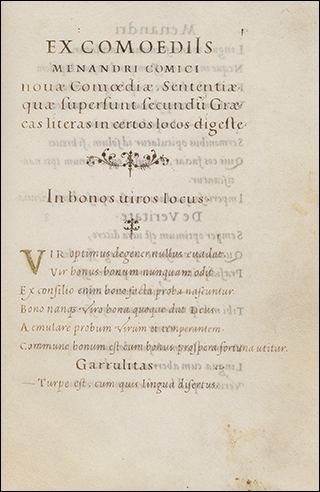 EX COMOEDIIS
MENANDRI COMICI
nouæ Comœdiæ, Sententiæ
quæ supersunt secundū Græ
cas literas in certos locos digestę
In bonos uiros locus.
VIR optimus degener nullus euadat.
Vir bonus bonum nunquam odit
Ex consilio enim bono facta proba nascuntur.
Bono nanq; Viro bona quoque dat Deus
Aemulare probum Virum et temperantem
Commune bonum est cum bonus prospera fortuna utitur.
Garrulitas
Turpe est, cum quis lingua disertus.